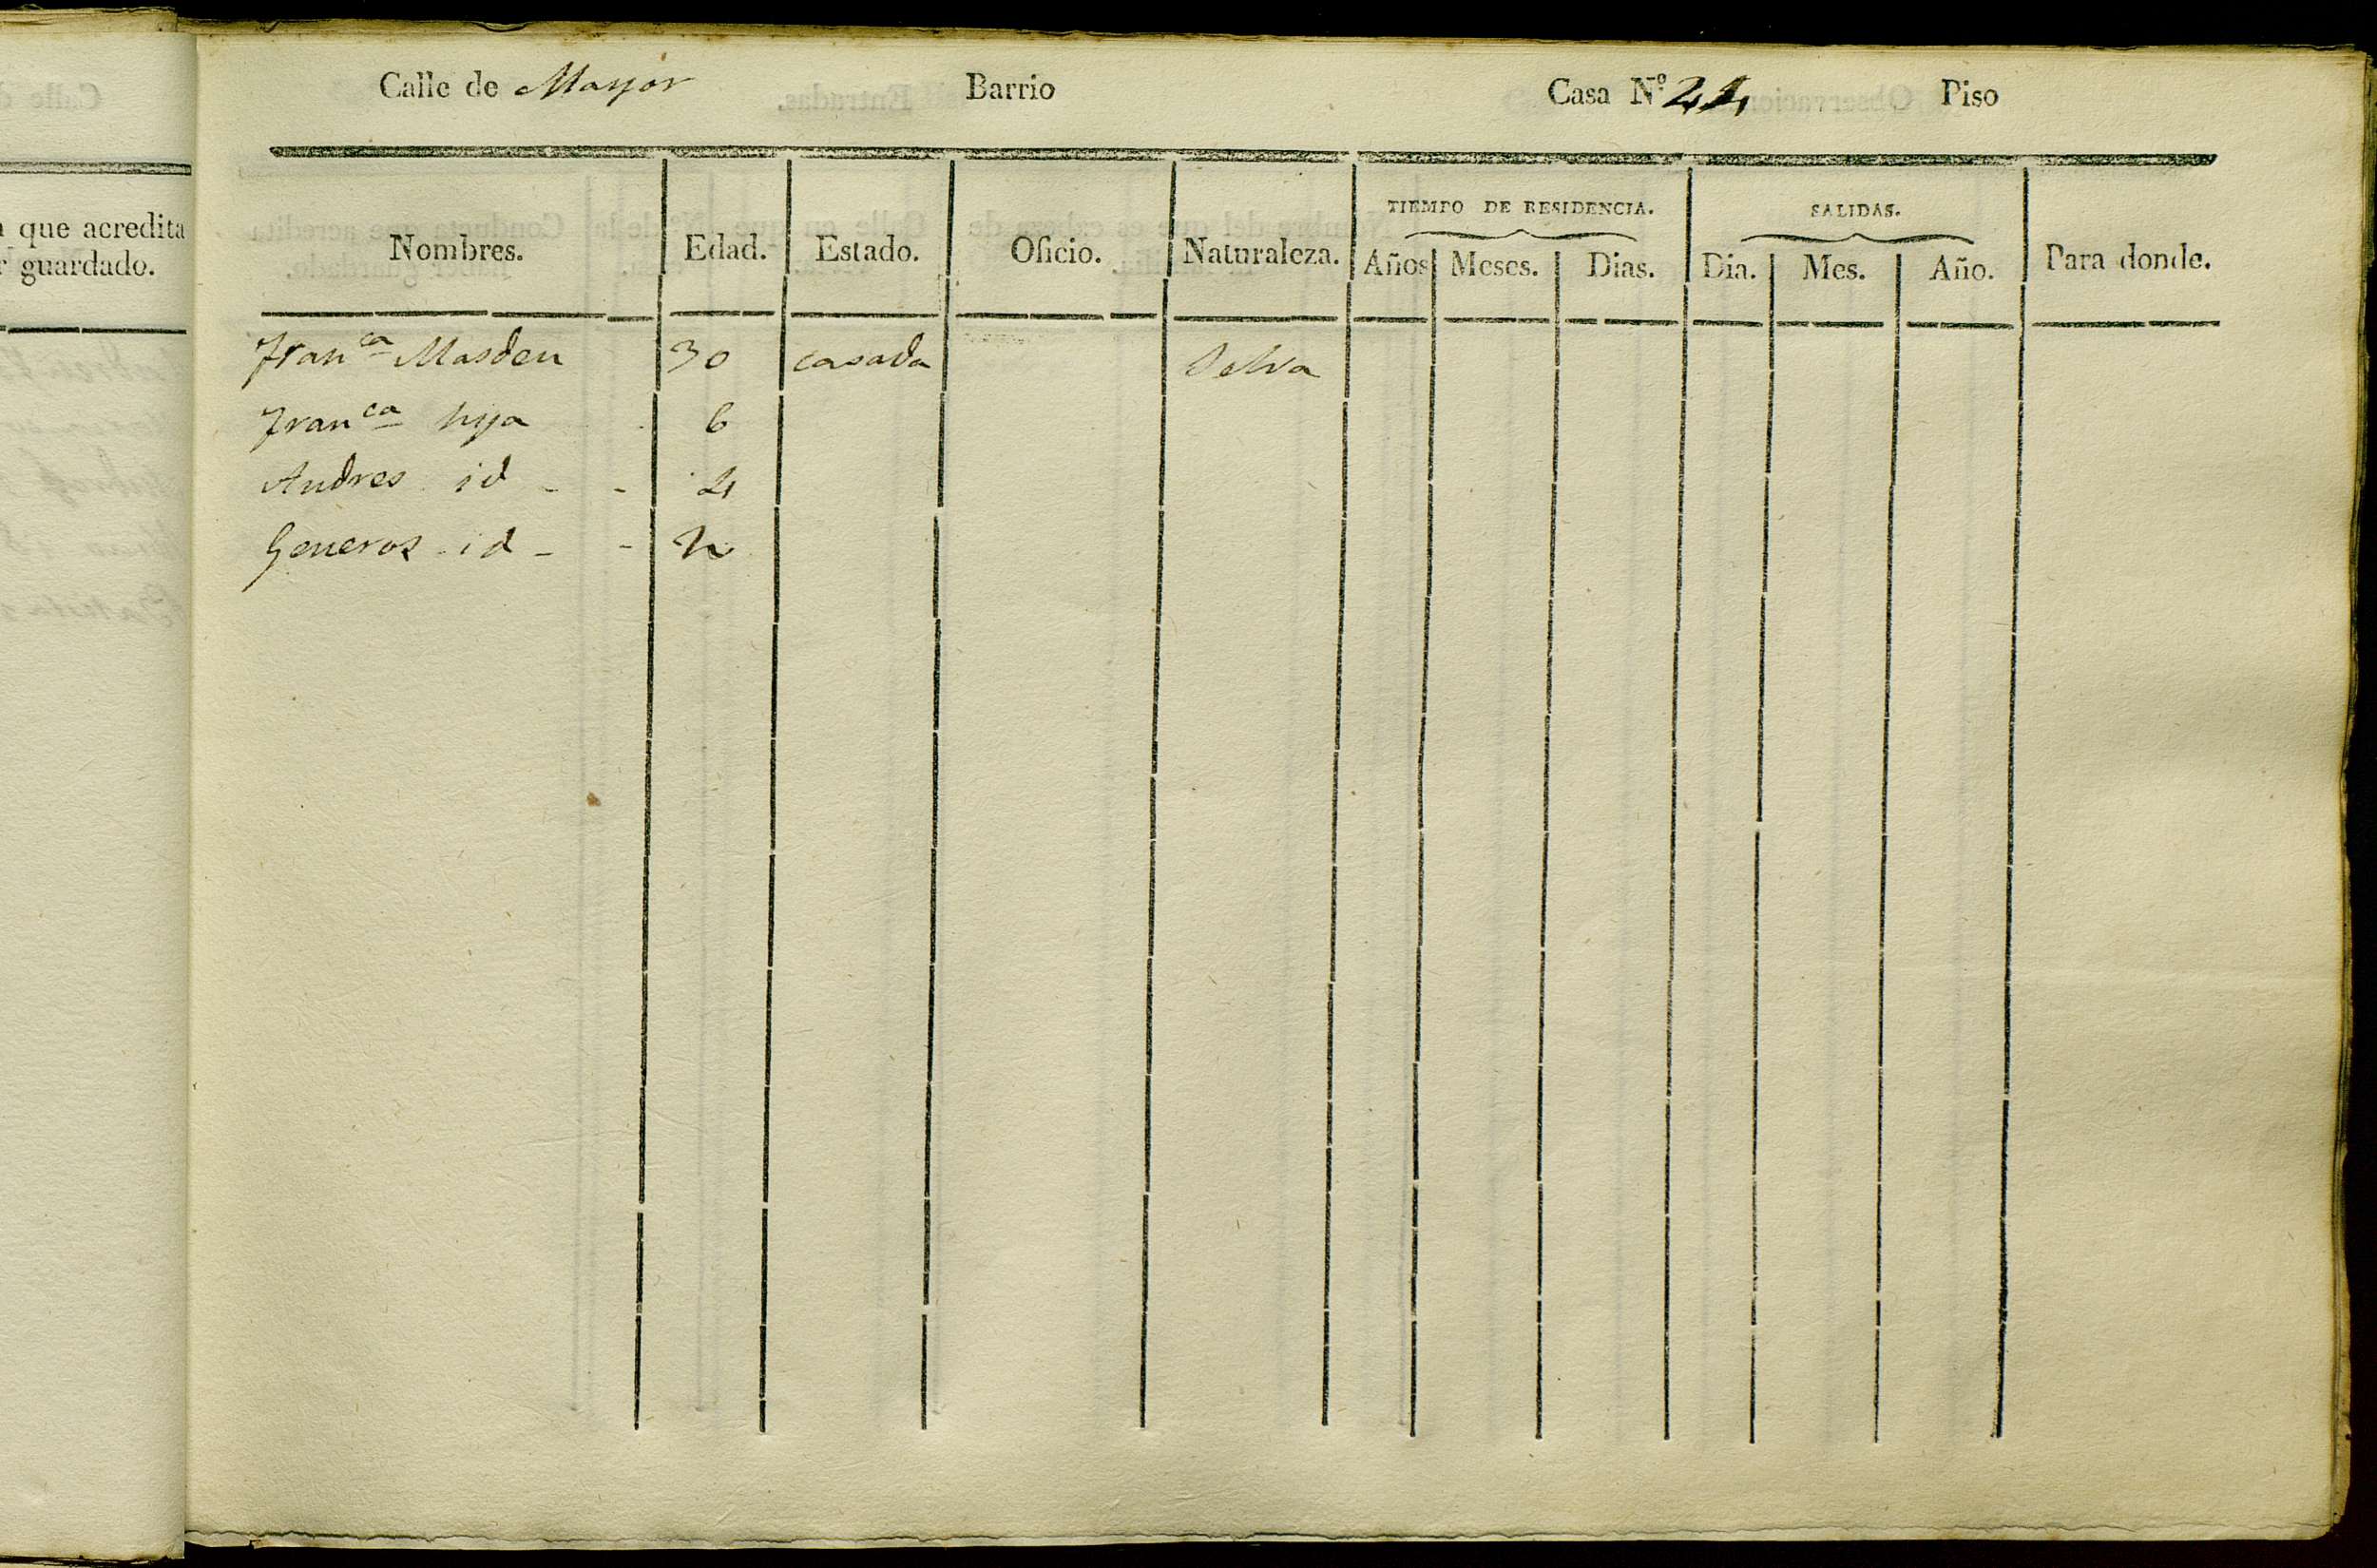 que acredita
guardado.
Calle de Mayor Barrio Casa Nº Piso
Nombres. Edad. Estado. Oficio. Naturaleza. TIEMPO DE RESIDENCIA. Años Meses. Dias. SALIDAS. Dia. Mes. Año. Para donde.
Franca Masdeu 30 casada Selva
Franca hija 6
Andres id - - 4
Generos id - - 2